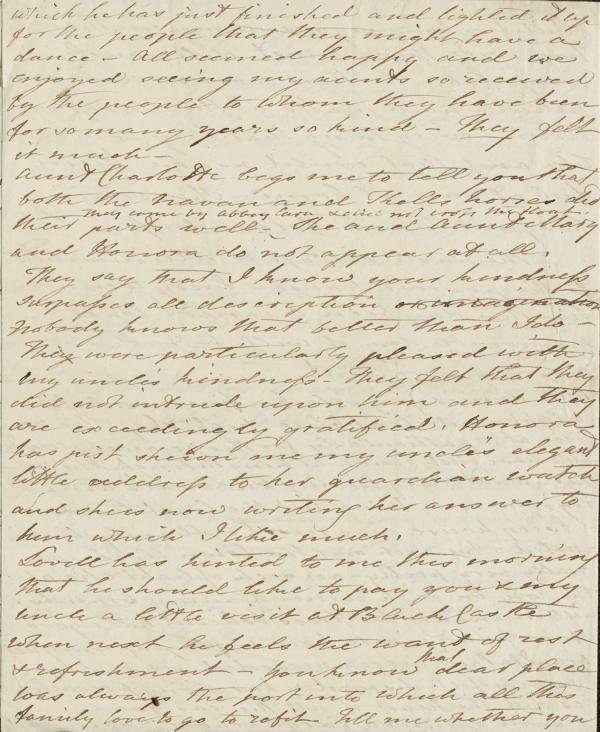 which he has just finished and lighted it up
for the people that they might have a
dance – All seemed happy and we
enjoyed seeing my aunts so received
by the people to whom they have been
for so many years so kind – They felt
it much –
Aunt Charlotte begs me to tell you that
both the Navan and Kells horses did
they came by Abbey Cara & did not cross the
their parts well – She and Aunt Mary
and Honora do not appear at all.
They say that I know your kindness
surpasses all description or imagination
Nobody knows that better than I do –
They were particularly pleased with
my uncle's kindness – They felt that they
did not intrude upon him and they
are exceedingly gratified. Honora
has just shewn me my uncle's elegant
little address to her guardian watch
and she is now writing her answer to
him which I like much.
Lovell has hinted to me this morning
that he should like to pay you & my
uncle a little visit at Black Castle
when next he feels the want of rest
& refreshment – you know that dear place
was always the port into which all this
family love to go to refit. Tell me whether you